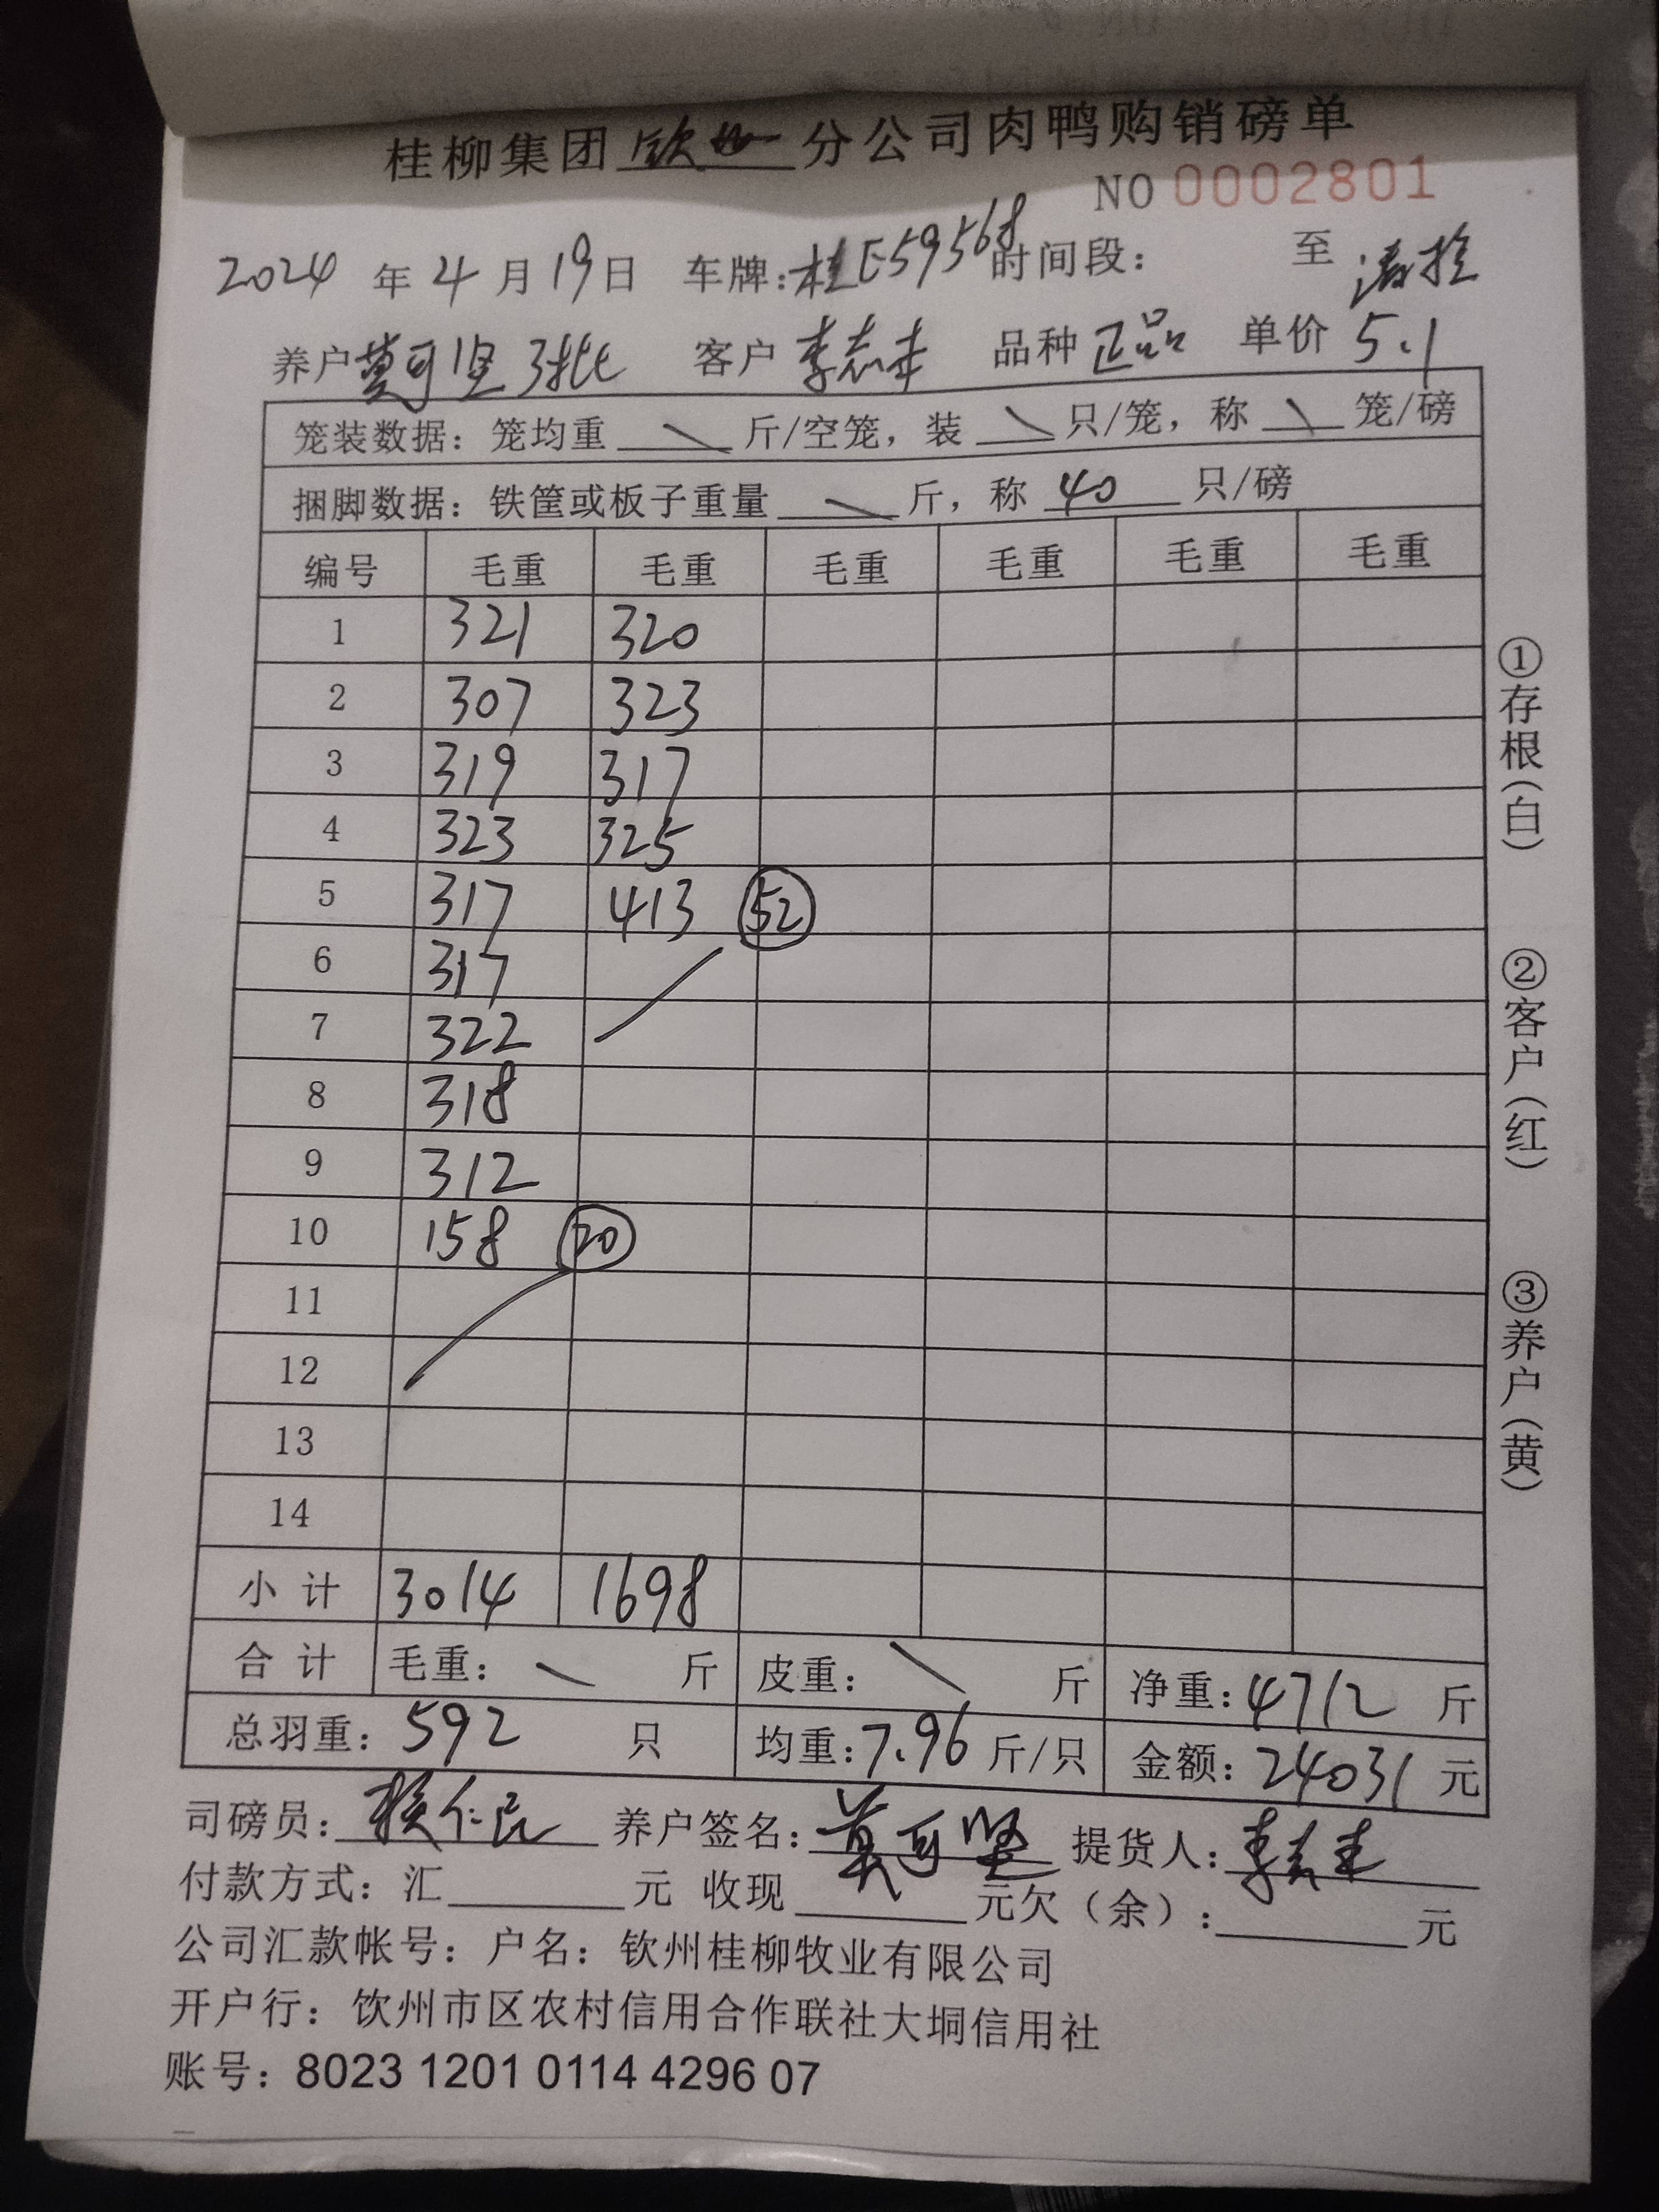 桂柳集团钦州分公司肉鸭购销磅单
NO 0002801
2024年4月19日 车牌:桂E59568 时间段: 至
养户 莫可坚3批 客户 李志丰 品种 正品 单价 5.1
笼装数据:笼均重 \ 斤/空笼,装 \ 只/笼,称 \ 笼/磅
捆脚数据:铁筐或板子重量 \ 斤,称 40 只/磅
编号 毛重 毛重 毛重 毛重 毛重 毛重
1 321 320
2 307 323
3 319 317
4 323 325
5 317 413 52
6 317
7 322
8 318
9 312
10 158 20
11
12
13
14
小计 3014 1698
合计 毛重: \ 斤 皮重: \ 斤 净重:4712 斤
总羽重:592 只 均重:7.96 斤/只 金额:24031 元
司磅员: 仁民 养户签名:莫可坚 提货人:李志丰
付款方式:汇 元 收现 元欠(余): 元
公司汇款帐号:户名:钦州桂柳牧业有限公司
开户行:饮州市区农村信用合作联社大垌信用社
账号:8023 1201 0114 4296 07
①存根(白)
②客户(红)
③养户(黄)